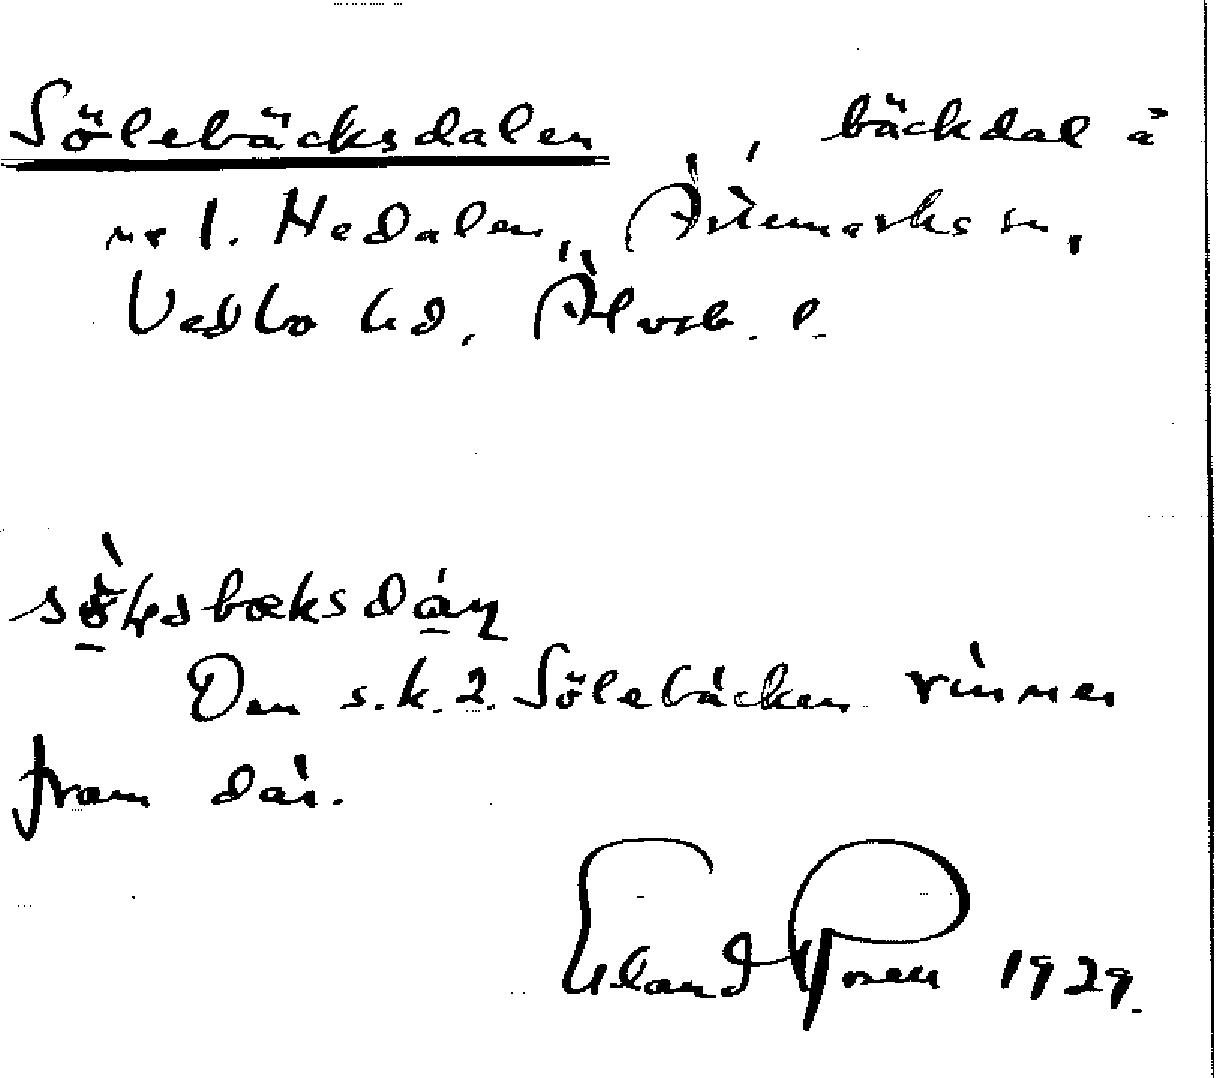 Sölebäcksdalen, bäckdal å
nr 1. Hedalen, Ärtemarks sn,
Vedbo hd, Älvsb. l.
Den s.k. 2. Sölebäcken rinner
fram där.
Erland Rosell 1929.